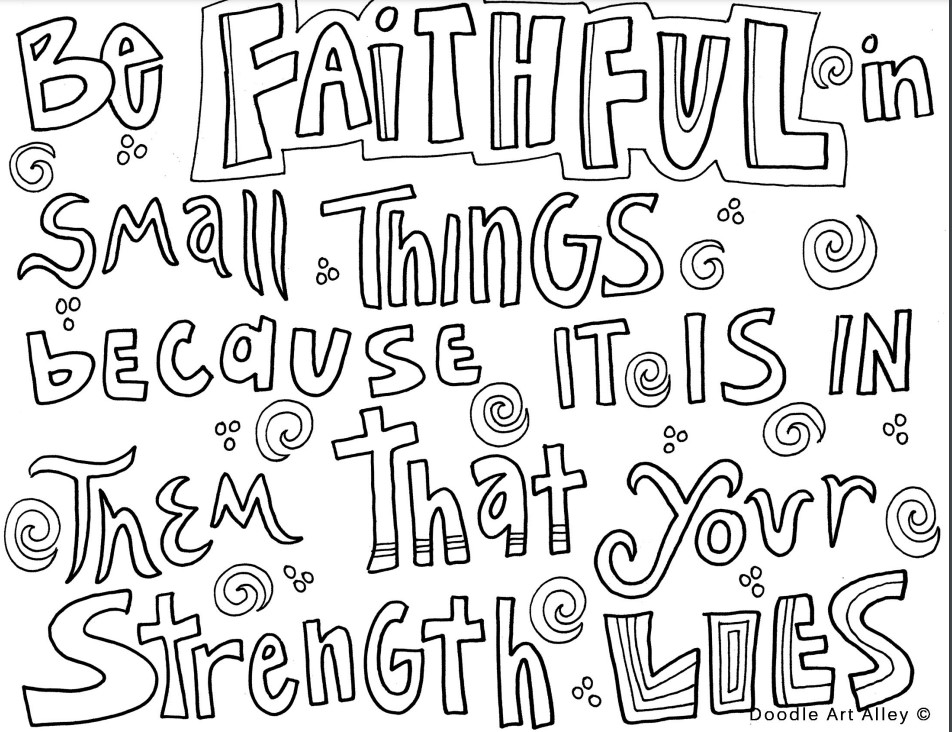 Be FAiTHFUL in
Small THINGS
because IT IS IN
THEM That your
Strength LIES
Doodle Art Alley ©